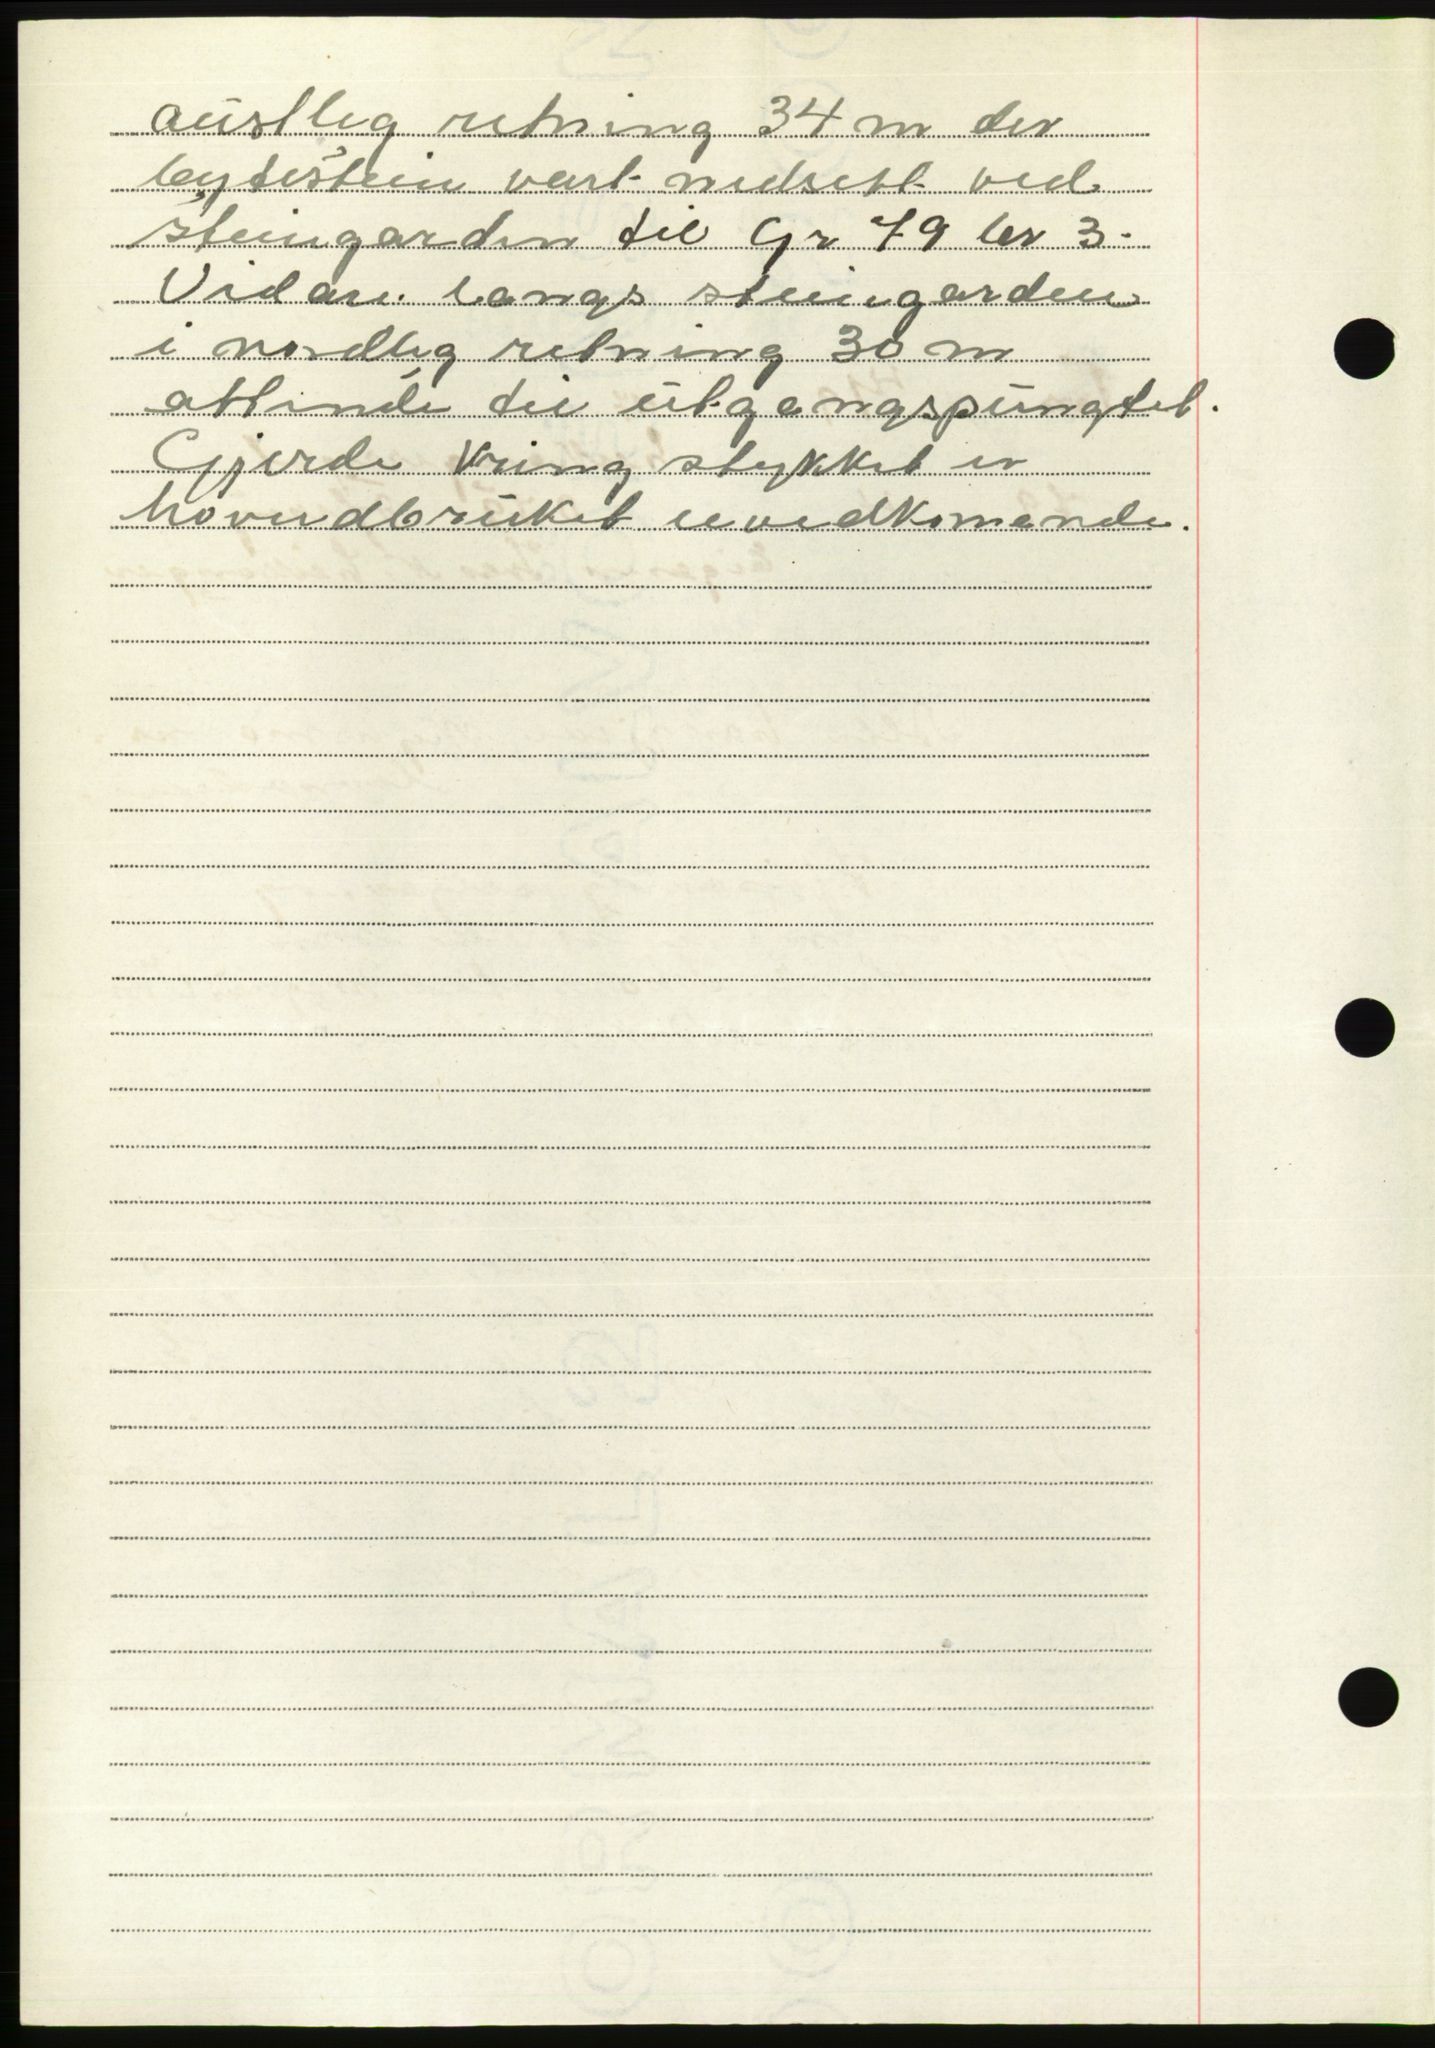 austleg retning 34 m der
bytestein vart nedsett ved
steingarden til Gr 79 br 3.
Vidare langs steingarden
i nordleg retning 30 m
attende til utgangspungtet.
Gjerde kring stykket er
hovudbruket uvedkomande.